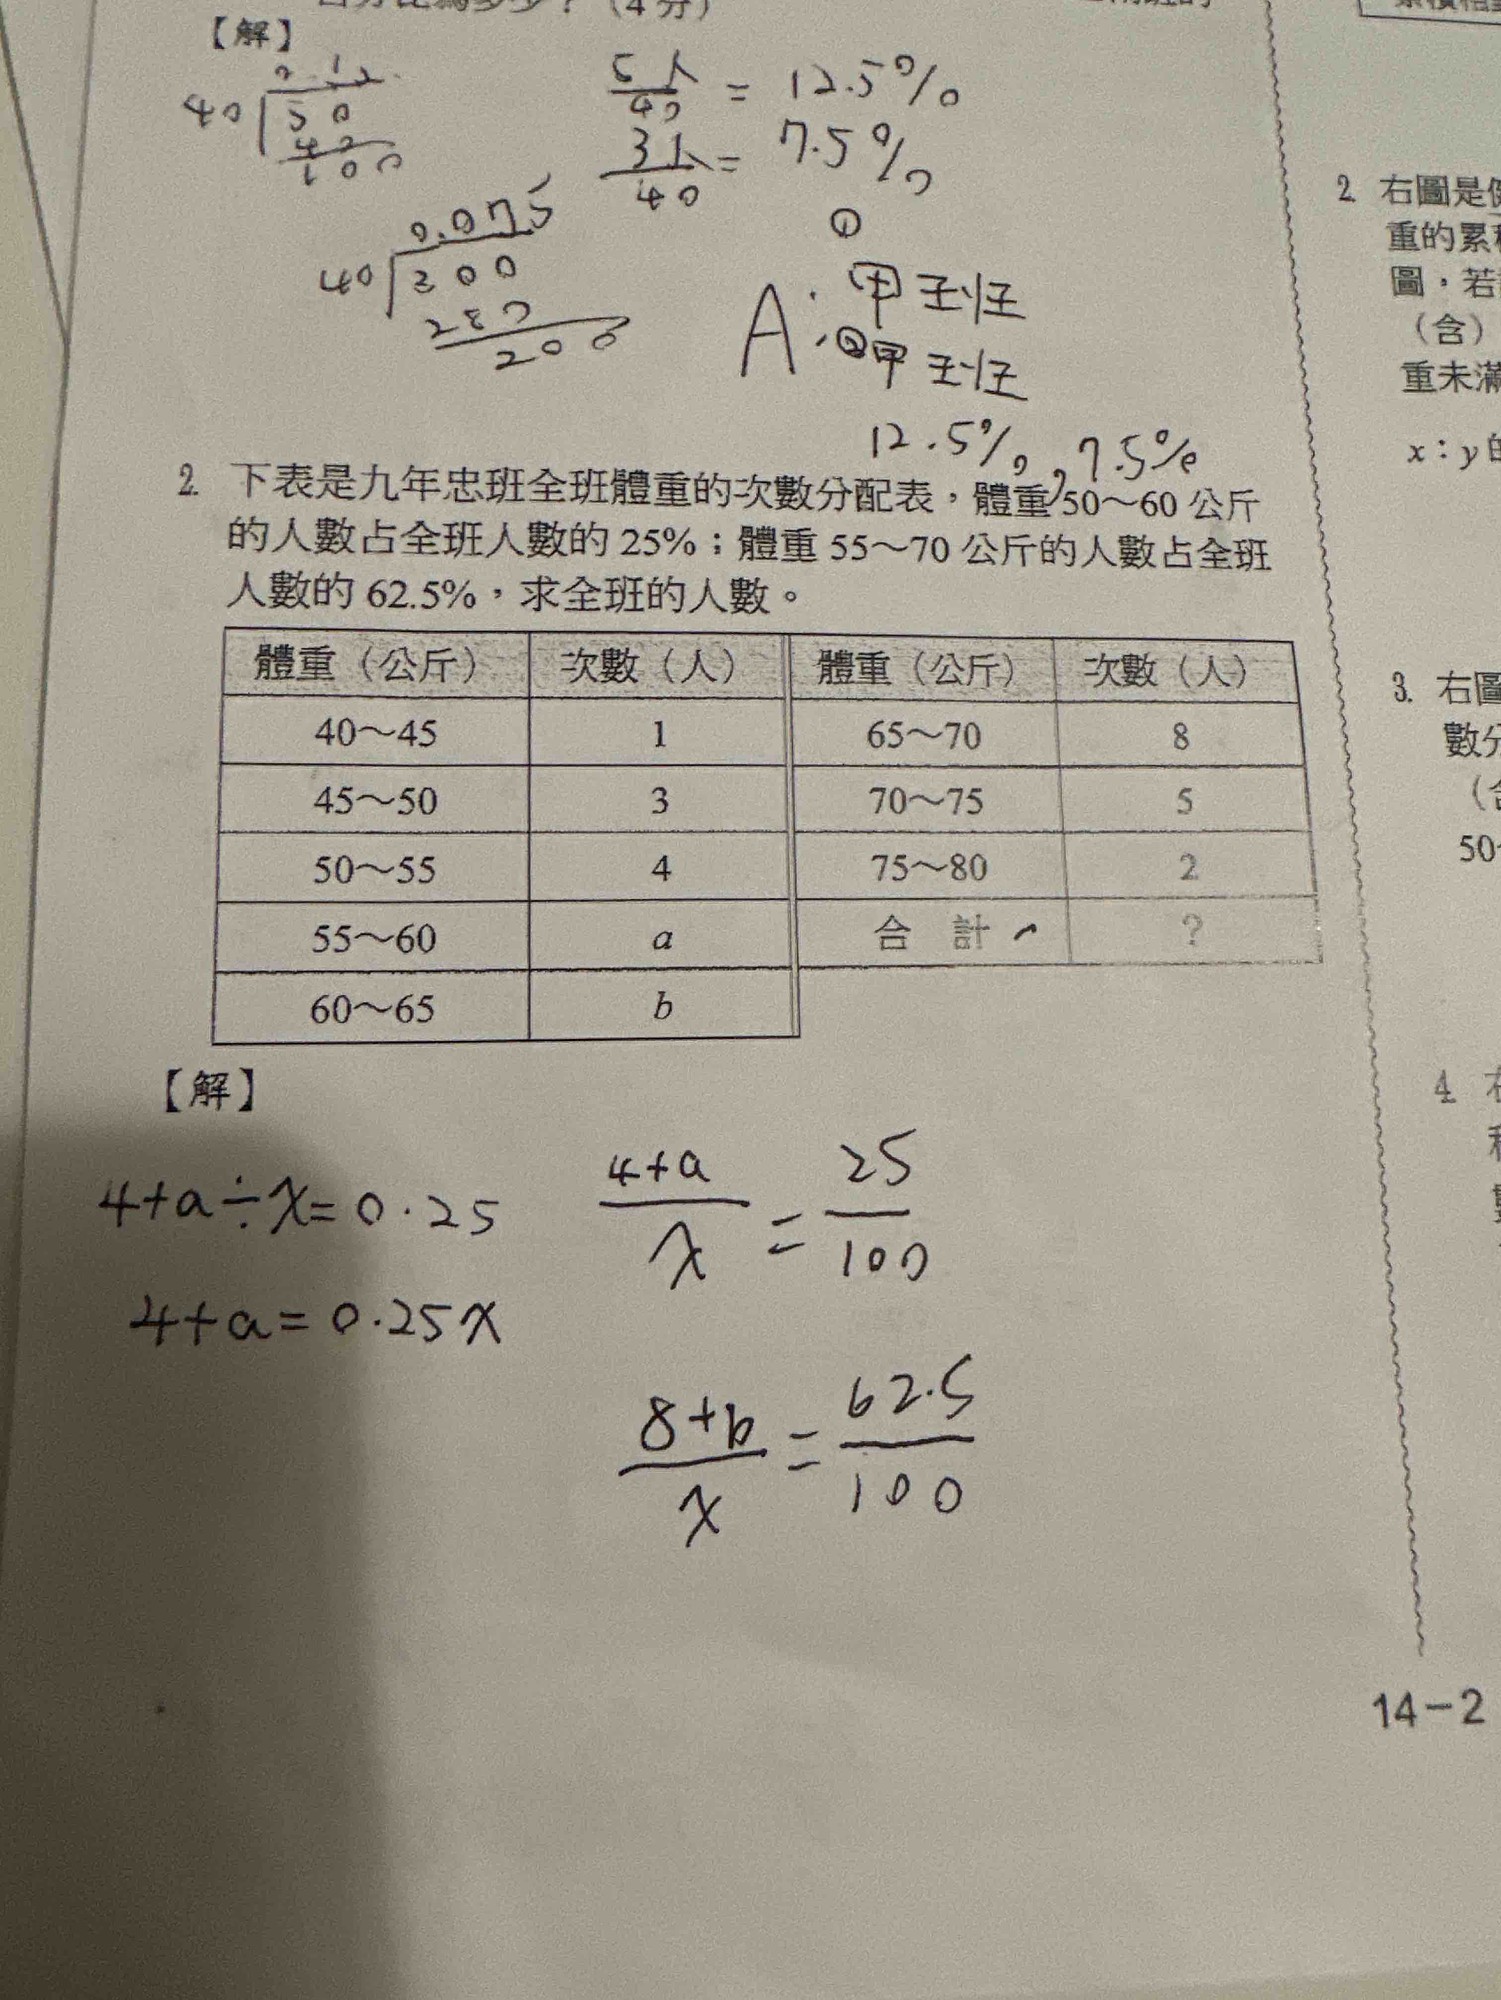 (4分)
【解】
40
50
100
5人/40 = 12.5%
3人/40 = 7.5%
0.075
40
300
280
200
A:①甲班
②甲班
12.5%, 7.5%
2. 下表是九年忠班全班體重的次數分配表，體重50～60公斤
的人數占全班人數的25%；體重55～70公斤的人數占全班
人數的62.5%，求全班的人數。
體重（公斤） 次數（人） 體重（公斤） 次數（人）
40～45 1 65～70 8
45～50 3 70～75 5
50～55 4 75～80 2
55～60 a 合 計 ?
60～65 b
【解】
4+a÷x=0.25
4+a=0.25x
4+a/x = 25/100
8+b/x = 62.5/100
2. 右圖是
重的累
圖，若
（含）
重未滿
x：y的
3. 右圖
數分
50
4.
14－2